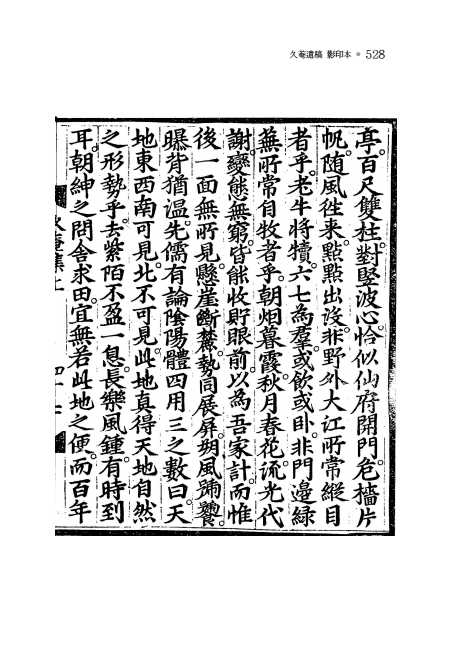 久菴遺稿 影印本 ● 528
亭。百尺雙柱。對竪波心。恰似仙府開門。危檣片
帆。随風徃来。點點出沒。非野外大江所常縱目
者乎。老牛將犢。六七為羣。或飮或卧。非門邊綠
蕪所常自牧者乎。朝烟暮霞。秋月春花。流光代
謝。變態無窮。皆能收貯眼前。以為吾家計。而惟
後一面無所見。懸崖斷麓。勢同展屛。朔風號饕。
曝背猶温。先儒有論陰陽體四用三之數曰。天
地東西南可見。北不可見。此地真得天地自然
之形勢乎。去紫陌不盈一息。長樂風鍾。有時到
耳。朝紳之問舍求田。宜無若此地之便。而百年
久菴集上
四十